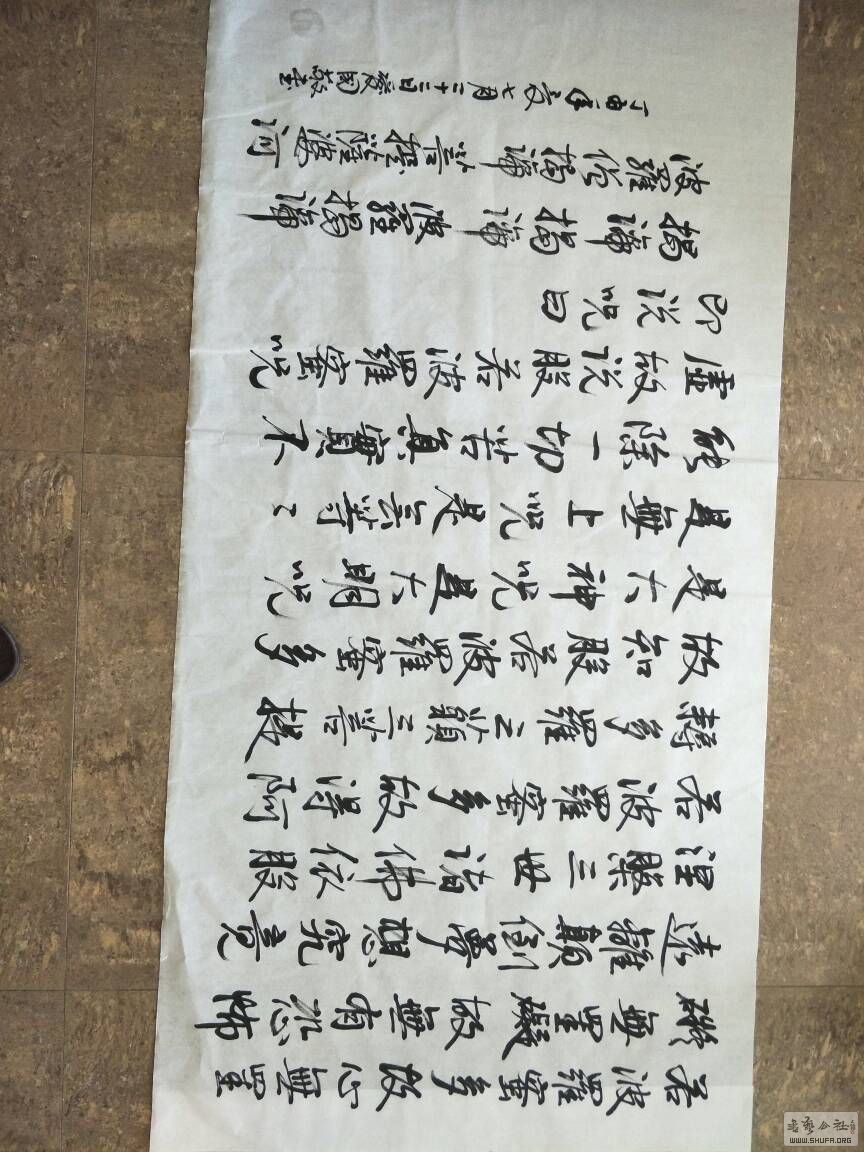 若波羅蜜多故心無罣
礙無罣礙故無有恐怖
遠離顛倒夢想究竟
涅槃三世諸佛依般
若波羅蜜多故得阿
耨多羅三藐三菩提
故知般若波羅蜜多
是大神咒是大明咒
是無上咒是無等〻
能除一切苦真實不
虛故说般若波羅蜜咒
即说咒曰
揭諦揭諦波羅揭諦
波羅僧揭諦菩提薩婆訶
丁酉年七月二十三日國敬書
WWW.SHUFA.ORG